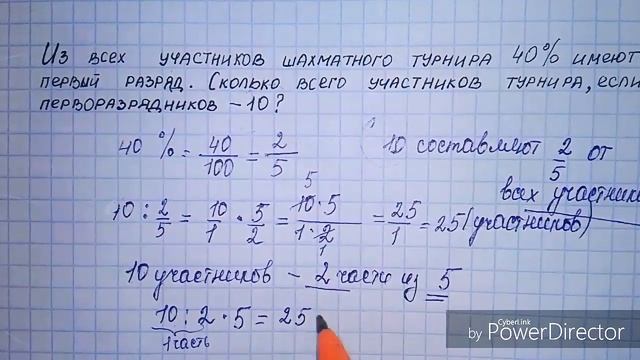 Из всех участников шахматного турнира 40% имеют
первый разряд. Сколько всего участников турнира, если
перворазрядников – 10?
40 % = 40/100 = 2/5
10 составляют 2/5 от
всех участник
10 : 2/5 = 10/1 · 5/2 = 10·5/1·2 = 25/1 = 25 (участников)
5
1
10 участников – 2 части из 5
10 : 2 · 5 = 25
1 часть
CyberLink
by PowerDirector